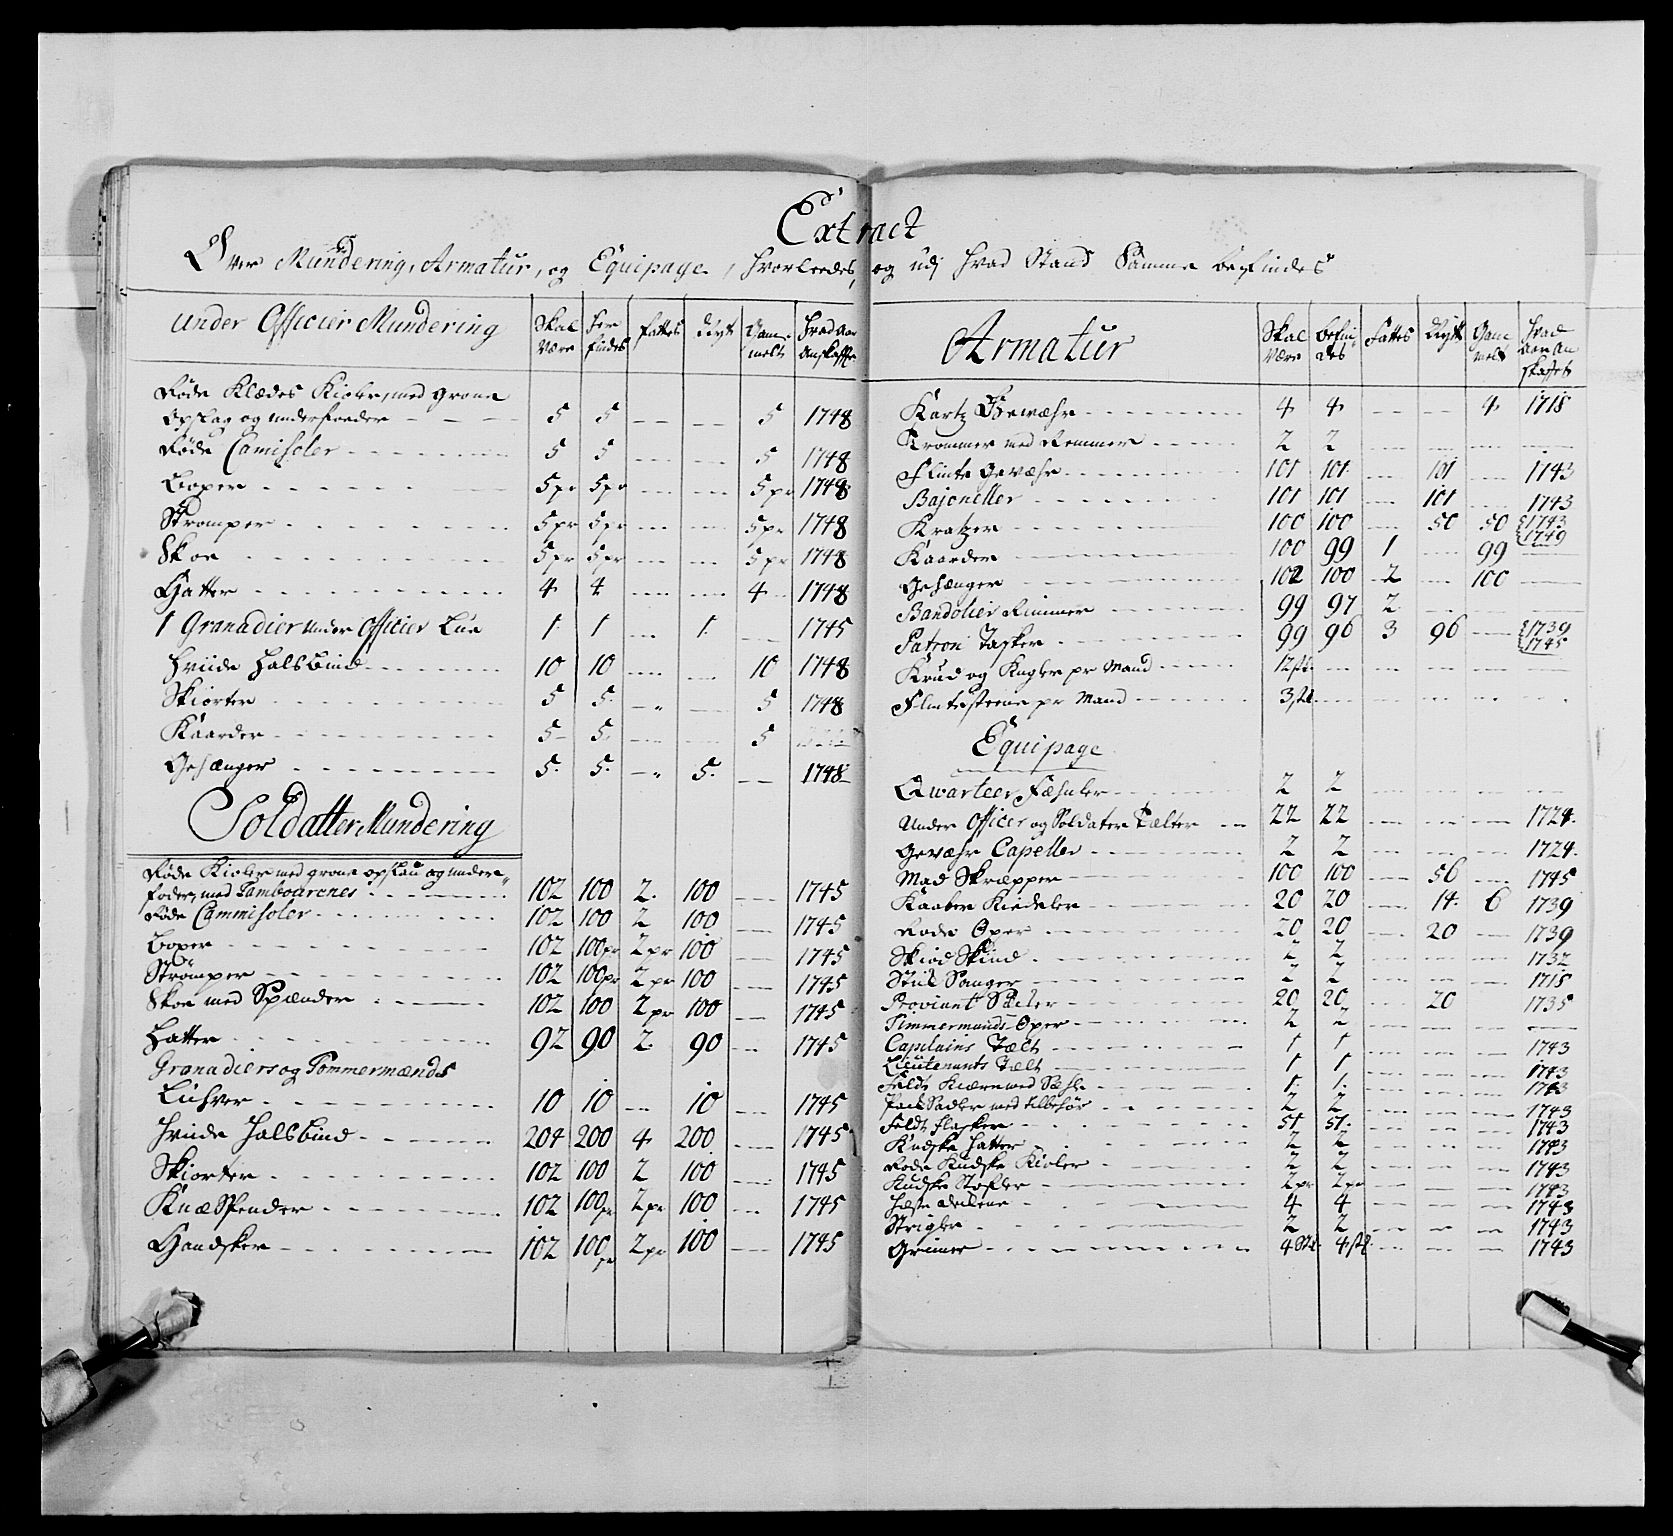 Extract
Over Mundering, Armatur, og Equipage, hvorleedes, og udj hvad Stand Samme befindes
Under Officier Mundering Skal være befindes fattes Dygt Gammelt hvad aar anskaffet
Røde Klædes Kioler, med grøne
Opslag og underfoeder 5 5 — — 5 1748
Røde Camisoler 5 5 — — 5 1748
Boxer 5 pr 5 pr — — 5 pr 1748
Strømper 5 pr 5 pr — — 5 pr 1748
Skoe 5 pr 5 pr — — 5 pr 1748
Hatter 4 4 — — 4 1748
1 Granadier under Officier Lue 1 1 — 1 — 1745
Hviide Halsbind 10 10 — — 10 1748
Skiorter 5 5 — — 5 1748
Kaarder 5 5 — — 5
Gehænger 5 5 — 5 — 1748
Soldatter Mundering
Røde Kioler med grøne opslau og under-
foder, med Tambourenes 102 100 2 100 — 1745
Røde Cammisoler 102 100 2 100 — 1745
Boxer 102 100 pr 2 pr 100 — 1745
Strømper 102 100 pr 2 pr 100 — 1745
Skoe med Spænder 102 100 2 pr 100 — 1745
Hatter 92 90 2 90 — 1745
Granadiers og Tømmermænds
Luhver 10 10 — 10 — 1745
Hviide Halsbind 204 200 4 200 — 1745
Skiorter 102 100 2 100 — 1745
Knæ Spender 102 100 pr 2 pr 100 — 1745
Handsker 102 100 pr 2 pr 100 — 1745
Armatur Skal være befindes Fattes Dygtt Gammelt hvad aar anskaffet
Kortz Gewæhr 4 4 — — 4 1718
Trommer med Remmer 2 2 — — — —
Flinte Gevæhr 101 101 — 101 — 1743
Bajonetter 101 101 — 101 — 1743
Kratzer 100 100 — 50 50 1743
1749
Kaarder 100 99 1 — 99 —
Gehænger 102 100 2 — 100 —
Bandolier Rimmer 99 97 2 — — —
Patron Tasker 99 96 3 96 — 1739
1745
Krud og Kugler pr Mand 12 st. — — — — —
Flintesteene pr Mand 3 st. — — — —
Equipage
Qwarteer Fæhnler 2 2 — — — —
Under Officer og Soldater Tælter 22 22 — — — 1724.
Gevæhr Capeller 2 2 — — — 1724.
Mad Skrepper 100 100 — 56 — 1745
Kaaber Kiedeler 20 20 — 14 6 1739
Røde Øxer 20 20 — 20 — 1739
Skiød Skind 2 2 — — — 1732
Stük Sanger 2 2 — — — 1718
Proviant Sæcker 20 20 — 20 — 1735
Timmermands Øxer 2 2 — — — —
Capitains Tælt 1 1 — — — 1743
Lieutenants Tælt 1 1 — — — 1743
Feldt Kiærre med 1 1 — — — 1743
Pack Sadler med tilbehør 2 2 — — — 1743
Feldt Flasker 51 51 — — — 1743
Kudske Hatter 2 2 — — — 1743
Røde Kudske Kioler 2 2 — — — 1743
Kudske Støfler 2 pr 2 pr — — — 1743
4 4 — — — 1743
Strigler 2 2 — — — 1743
Grimer 4 st. 4 st. — — — 1743